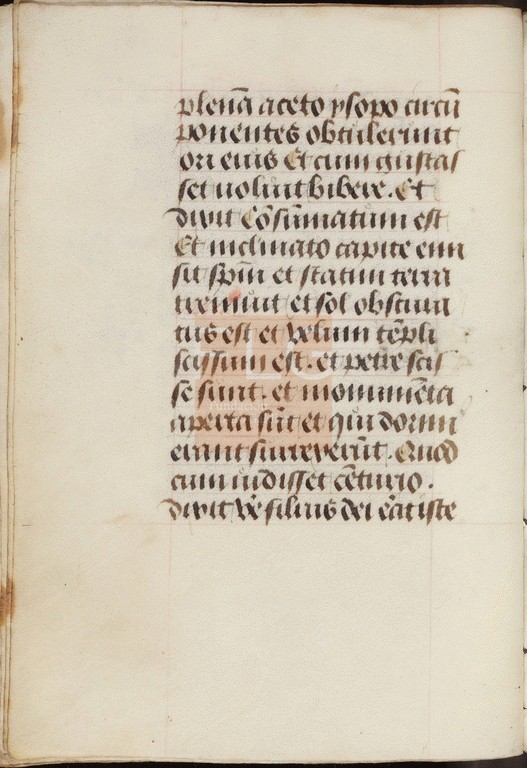 plenā aceto ysopo circū
ponentes obtulerunt
ori eius Et cum gustas
set noluit bibere. Et
dixit Cōsūmatum est
Et inclinato capite emi
sit spm̄ et statim terra
tremuit et sol obscura
tus est et velum tēpli
scissum est. et petre scis
se sunt. et monumēta
aperta sūt et qui dormi
erant surrexerūt. Quod
cum uidisset cēturio.
dixit Ve᷑ filius dei erat iste